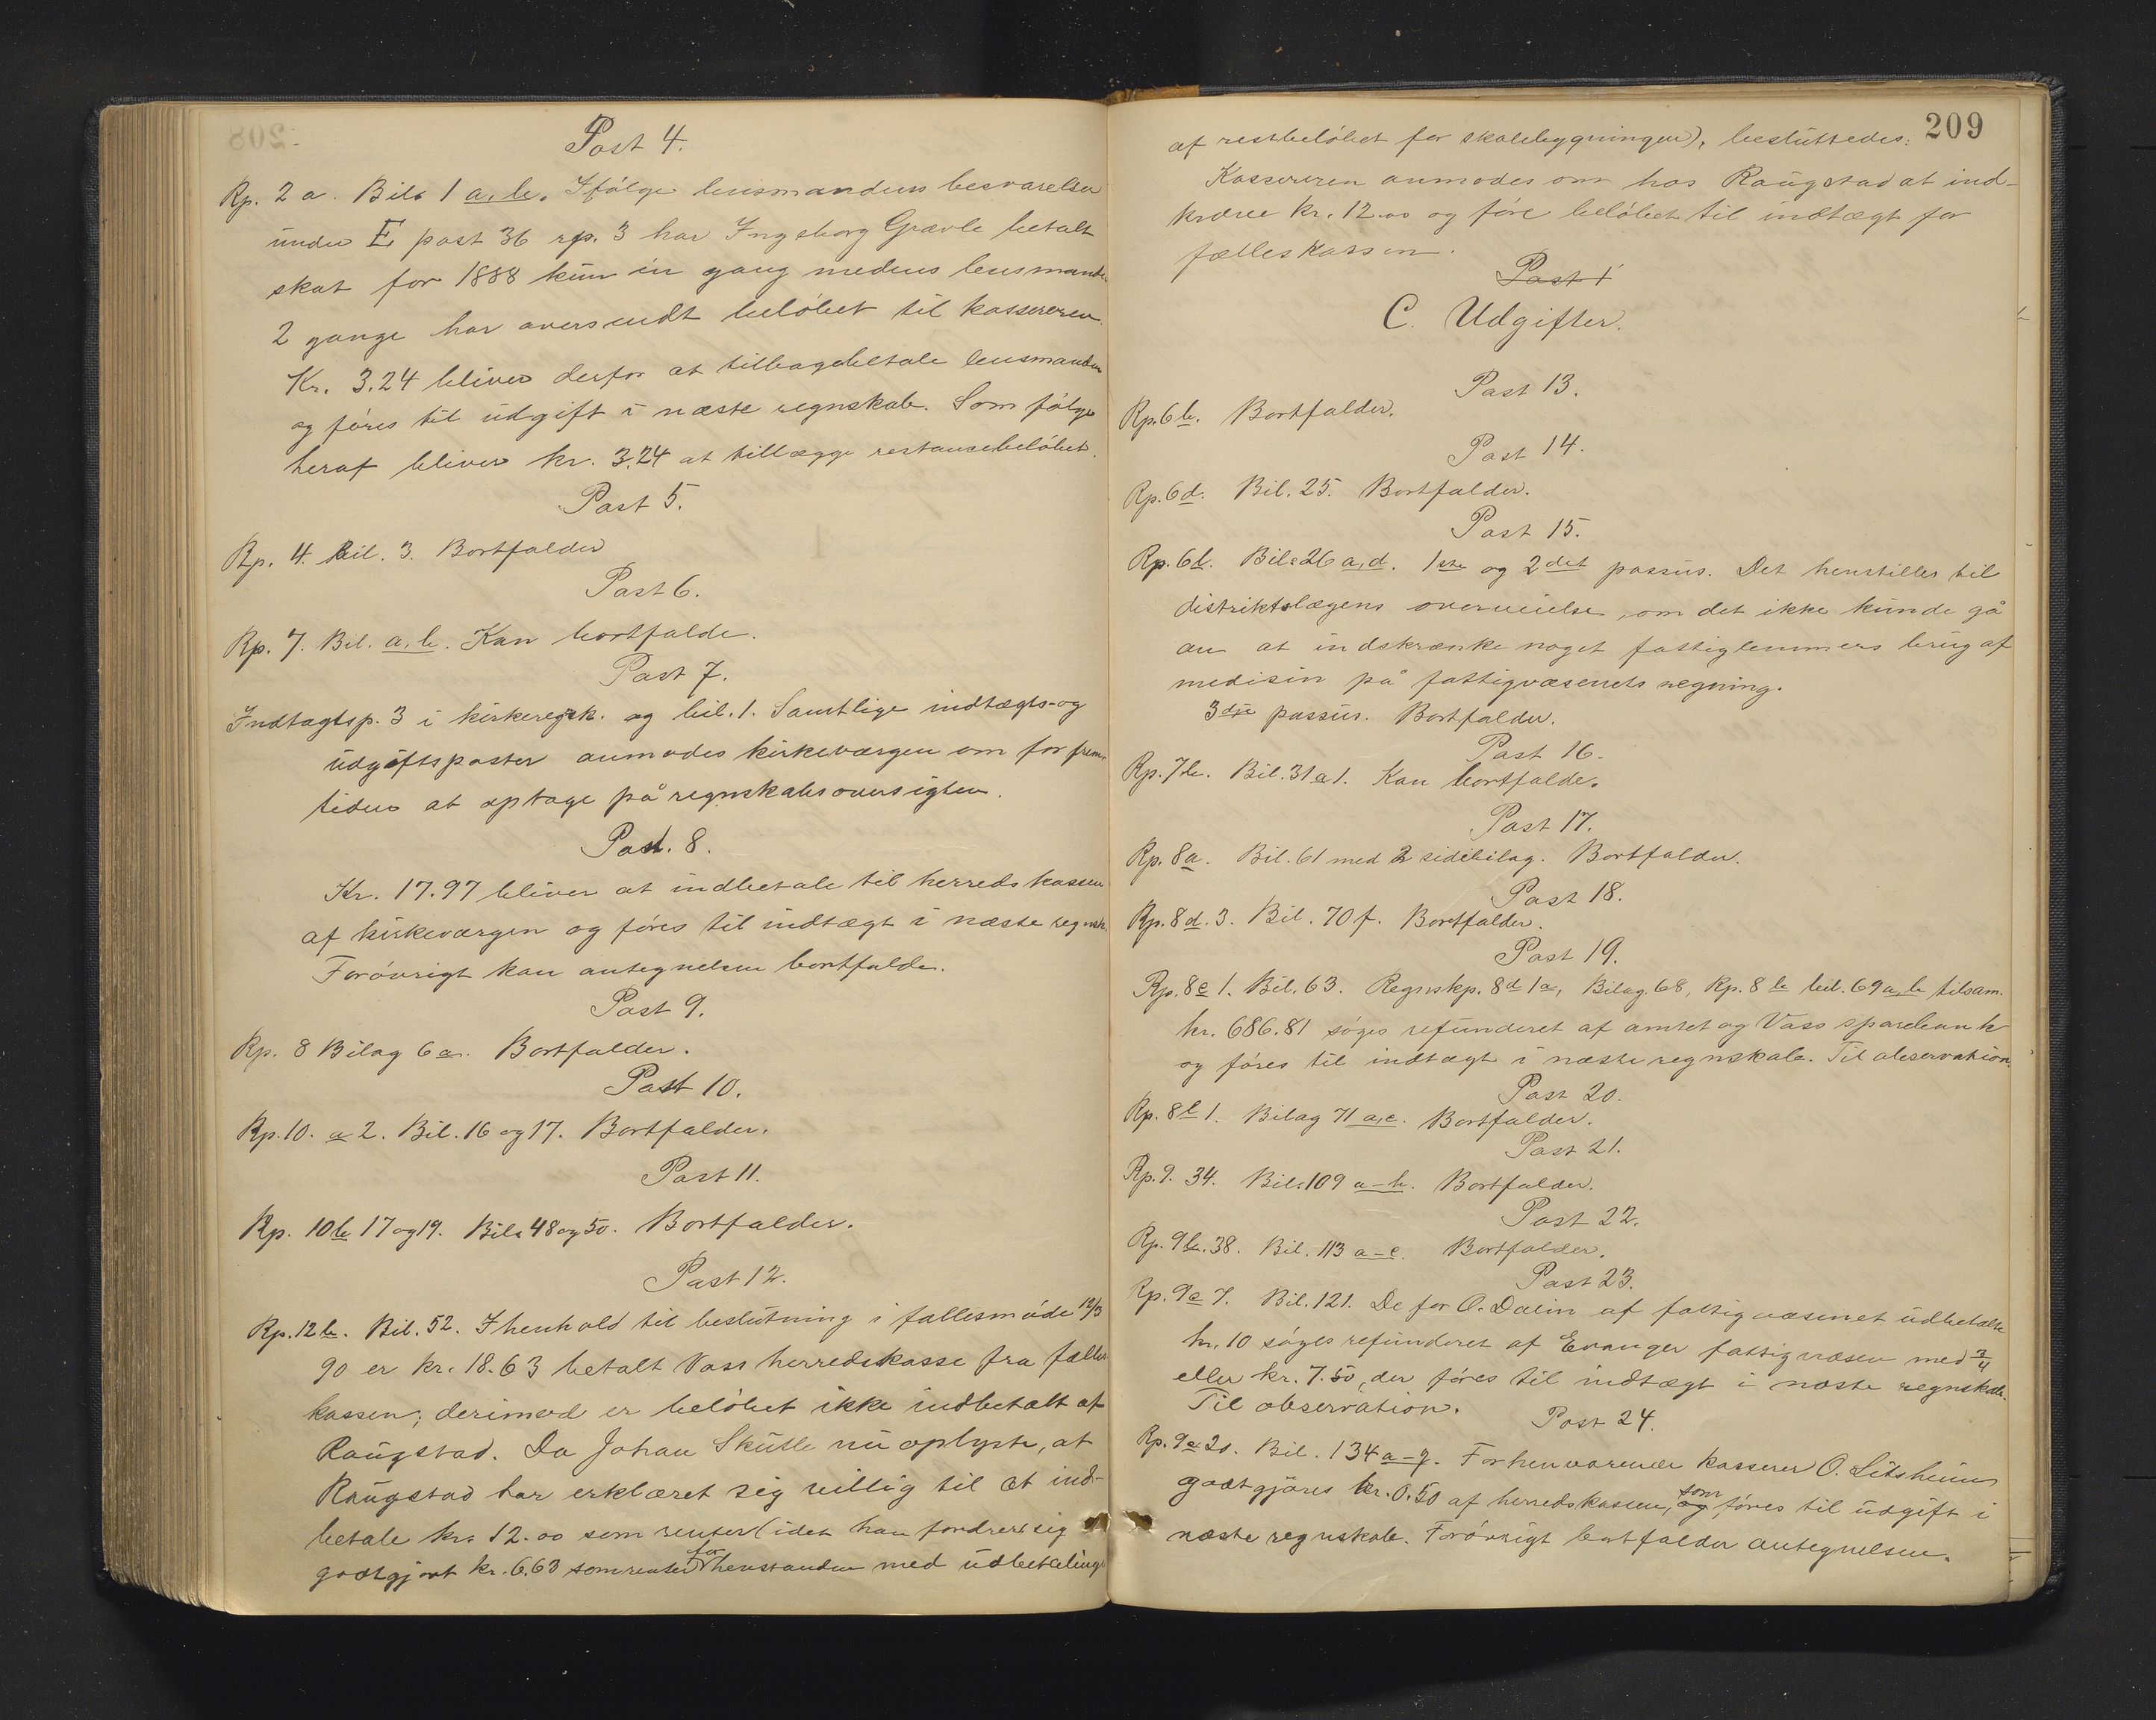 Post 4.
Rp. 2 a. Bil. 1 a, b. Ifölge lensmandens besvarelse
under E, post 36 rp. 3 har Ingeborg Grevle betalt
skat for 1888 kun én gang medens lensmanden
2 gange har oversendt belöbet til kassereren.
Kr. 3.24 bliver derfor at tilbagebetale lensmanden
og föres til udgift i næste regnskab. Som fölge
heraf bliver kr. 3.24 at tillægge restancebelöbet.
Post 5.
Rp. 4. Bil. 3. Bortfalder
Post 6.
Rp. 7. Bil. a, b. Kan bortfalde.
Post 7.
Indtægtsp. 3 i kirkeregsk. og bil. 1. Samtlige indtægts- og
udgiftsposter anmodes kirkeværgen om for frem-
tiden at optage på regnskabsoversigten.
Post. 8.
Kr. 17.97 bliver at indbetale til herredskassen
af kirkeværgen og föres til indtægt i næste regnsk.
Forövrigt kan antegnelsen bortfalde.
Post 9.
Rp. 8 Bilag 6 a. Bortfalder.
Post 10.
Rp. 10. a 2. Bil. 16 og 17. Bortfalder.
Post 11.
Rp. 10 b 17 og 19. Bil. 48 og 50. Bortfalder.
Post 12.
Rp. 12 b. Bil. 52. I henhold til beslutning i fællesmöde 12/3
90 er kr. 18.63 betalt Voss herredskasse fra fælles
kassen; derimod er belöbet ikke indbetalt af
Raugstad. Da Johan Skutle nu oplyste, at
Raugstad har erklæret sig villig til at ind-
betale kr. 12.00 som renter (idet han fordrer sig
godtgjort kr. 6.63 som renter for henstanden med udbetaling
209
af restbelöbet for skolebygningen), besluttedes:
Kassereren anmodes om hos Raugstad at ind-
kræve kr. 12.00 og före belöbet til indtægt for
fælleskassen.
Post 1
C. Udgifter.
Post 13.
Rp. 6 b. Bortfalder.
Post 14.
Rp. 6 d. Bil. 25. Bortfalder.
Post 15.
Rp. 6 b. Bil. 26 a, d. 1ste og 2det passus. Det henstilles til
distriktslægens overveielse, om det ikke kunde gå
an at indskrænke noget fattiglemmers brug af
medisin på fattigvæsenets regning.
3dje passus. Bortfalder.
Post 16.
Rp. 7 b. Bil. 31 a 1. Kan bortfalde.
Post 17.
Rp. 8 a. Bil. 61 med 2 sidebilag. Bortfalder.
Post 18.
Rp. 8 d. 3. Bil. 70 f. Bortfalder.
Post 19.
Rp. 8 c 1. Bil. 63. Regnskp. 8 d 1 a, Bilag 68, Rp. 8 b bil. 69 a, b tilsam.
kr. 686.81 söges refunderet af amtet og Voss sparebank
og föres til indtægt i næste regnskab. Til observation.
Post 20.
Rp. 8 b 1. Bilag 71 a, c. Bortfalder.
Post 21.
Rp. 9. 34. Bil. 109 a–h. Bortfalder.
Post 22.
Rp. 9 b. 38. Bil. 113 a–c. Bortfalder.
Post 23.
Rp. 9 c 7. Bil. 121. De for O. Dalin af fattigvæsenet udbetalte
kr. 10 söges refunderet af Evanger fattigvæsen med 3/4
eller kr. 7.50, der föres til indtægt i næste regnskab.
Til observation.
Post 24.
Rp. 9 e 20. Bil. 134 a–g. Forhenværende kasserer O. Litsheim
godtgjöres kr. 0.50 af herredskassen, og som föres til udgift i
næste regnskab. Forövrigt bortfalder antegnelsen.